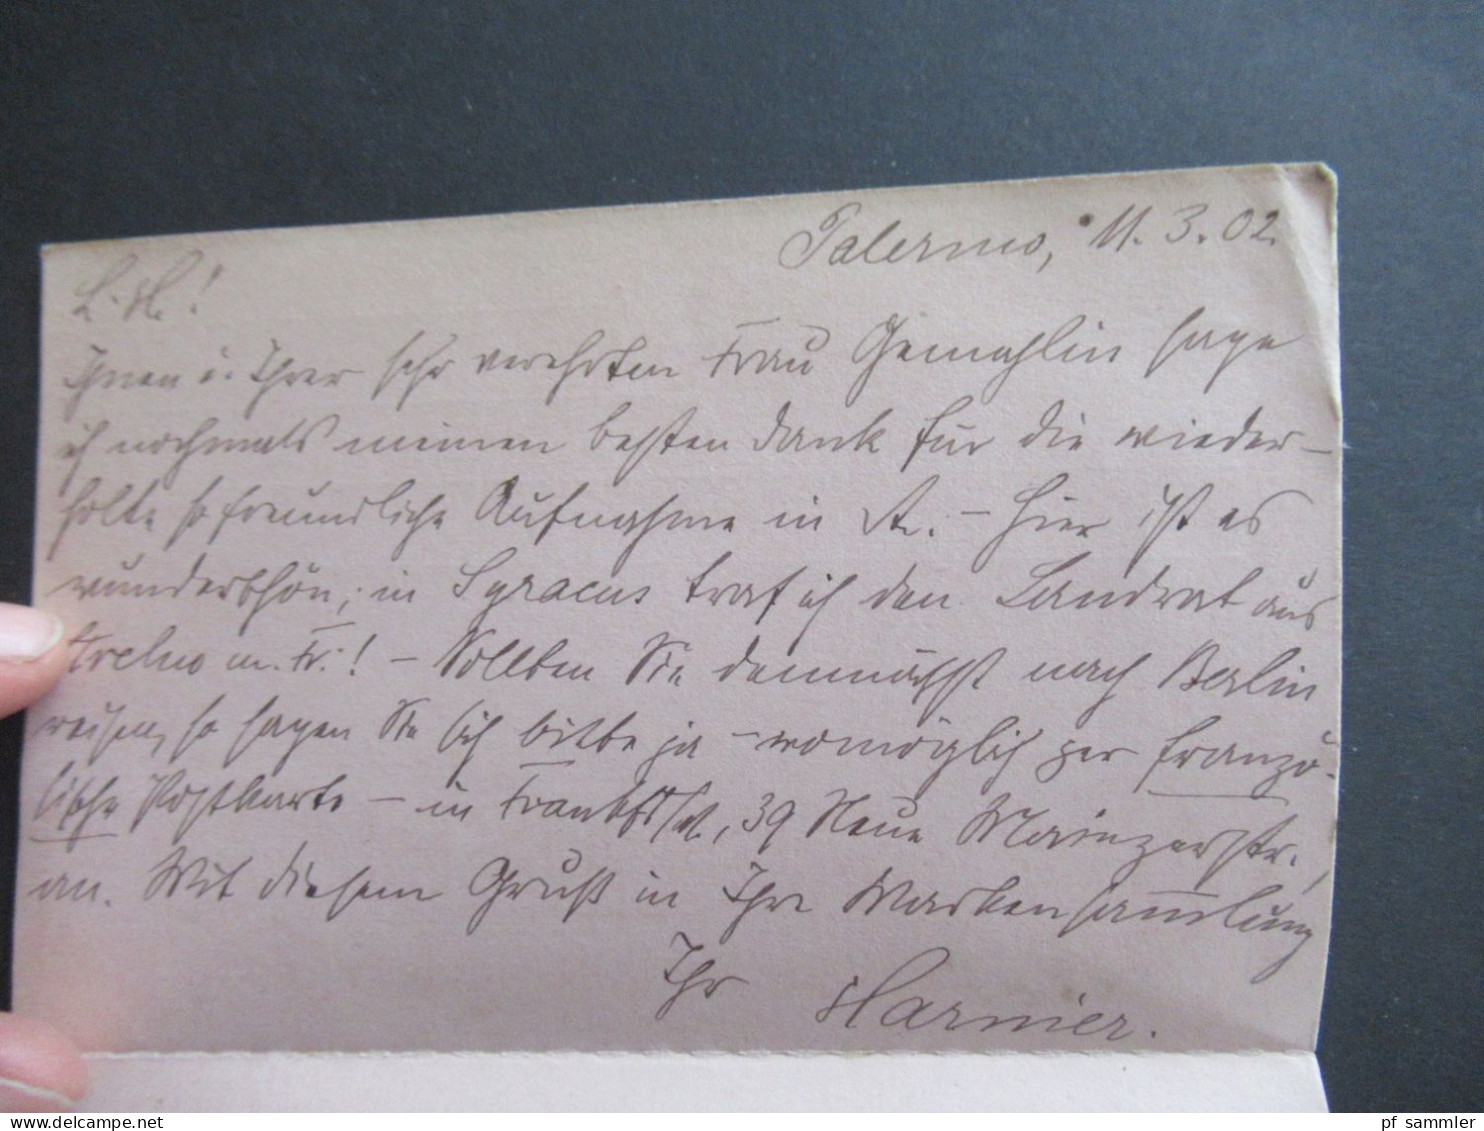 Palermo, 11.3.02.
L. H.!
Ihnen u. Ihrer sehr verehrten Frau Gemahlin sage
ich nochmals meinen besten Dank für die wieder-
holte so freundliche Aufnahme in A. – Hier ist es
wunderschön; in Syracus traf ich den Landrat aus
Strelno m. Fr.! – Sollten Sie demnächst nach Berlin
reisen, so sagen Sie sich bitte ja – womöglich per franzö-
sische Postkarte – in Frankft/M., 39 Neue Mainzerstr.,
an. Mit diesem Gruß in Ihre Markensammlung
Ihr Harnier.
pf_sammler